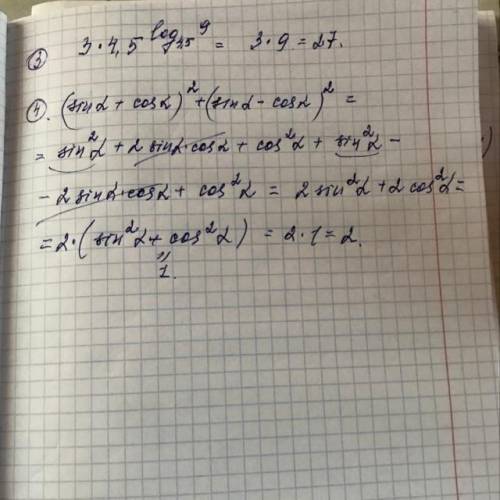 ③ 3·4,5^(log₄,₅ 9) = 3·9 = 27.
④. (sin α + cos α)² + (sin α - cos α)² =
= sin²α + 2 sin α·cos α + cos²α + sin²α -
- 2 sin α·cos α + cos²α = 2 sin²α + 2 cos²α =
= 2·(sin²α + cos²α) = 2·1 = 2.
"
1.